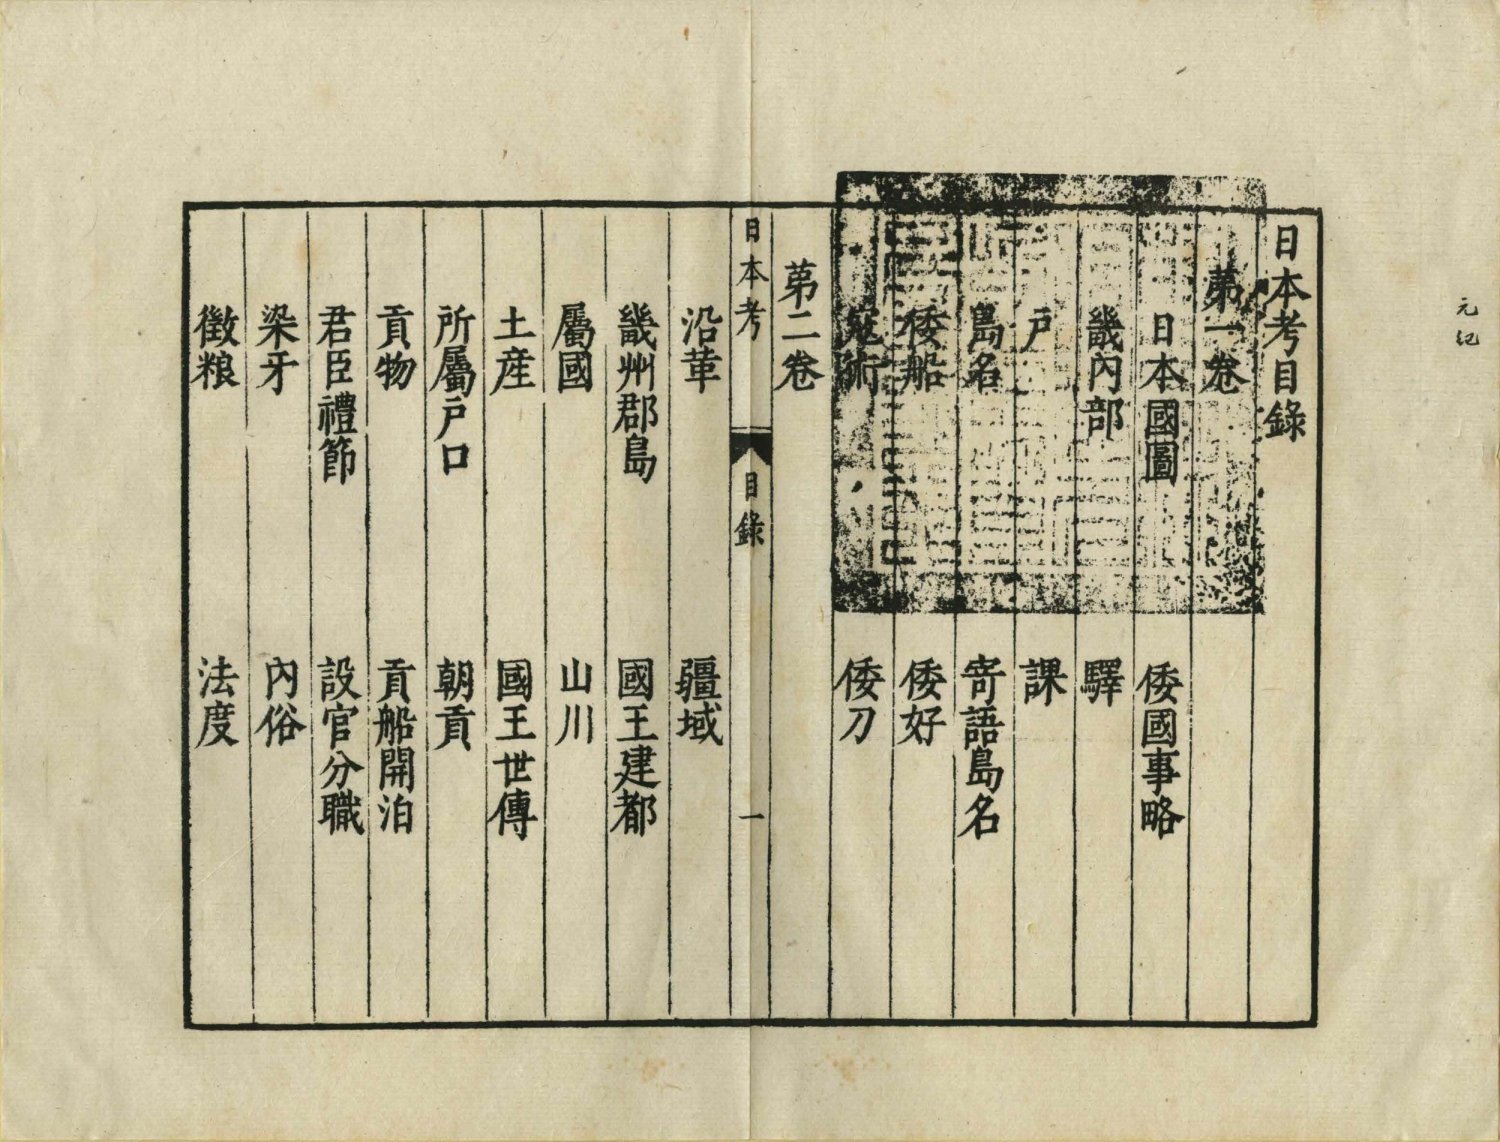 日本考目錄
第一卷
日本國圖 倭國事略
畿內部 驛
戶 課
島名 寄語島名
倭船 倭好
寇術 倭刀
第二卷
日本考 目錄 一
沿革 疆域
畿州郡島 國王建都
屬國 山川
土產 國王世傳
所屬戶口 朝貢
貢物 貢船開泊
君臣禮節 設官分職
染牙 內俗
徵粮 法度